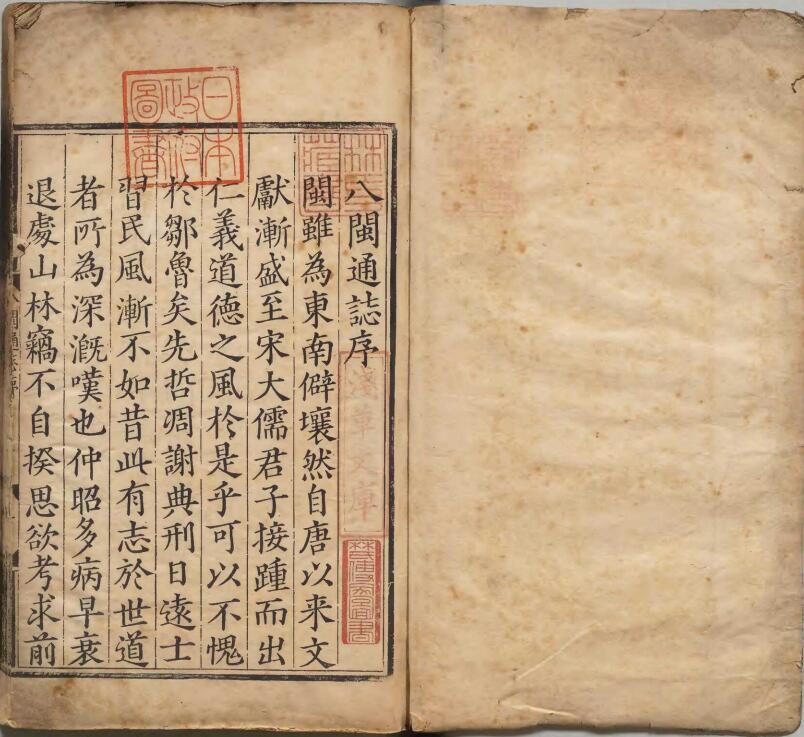 八閩通誌序
閩雖為東南僻壤然自唐以来文
獻漸盛至宋大儒君子接踵而出
仁義道德之風於是乎可以不愧
於鄒魯矣先哲凋謝典刑日遠士
習民風漸不如昔此有志於世道
者所為深慨嘆也仲昭多病早衰
退處山林竊不自揆思欲考求前
日本政府圖書
林氏藏書
淺草文庫